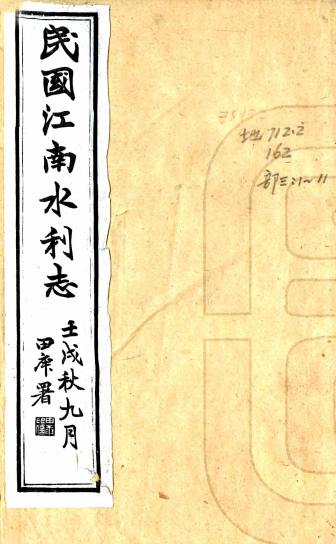 民國江南水利志
壬戌秋九月
田庚署
地712.2
162
部三:1~11